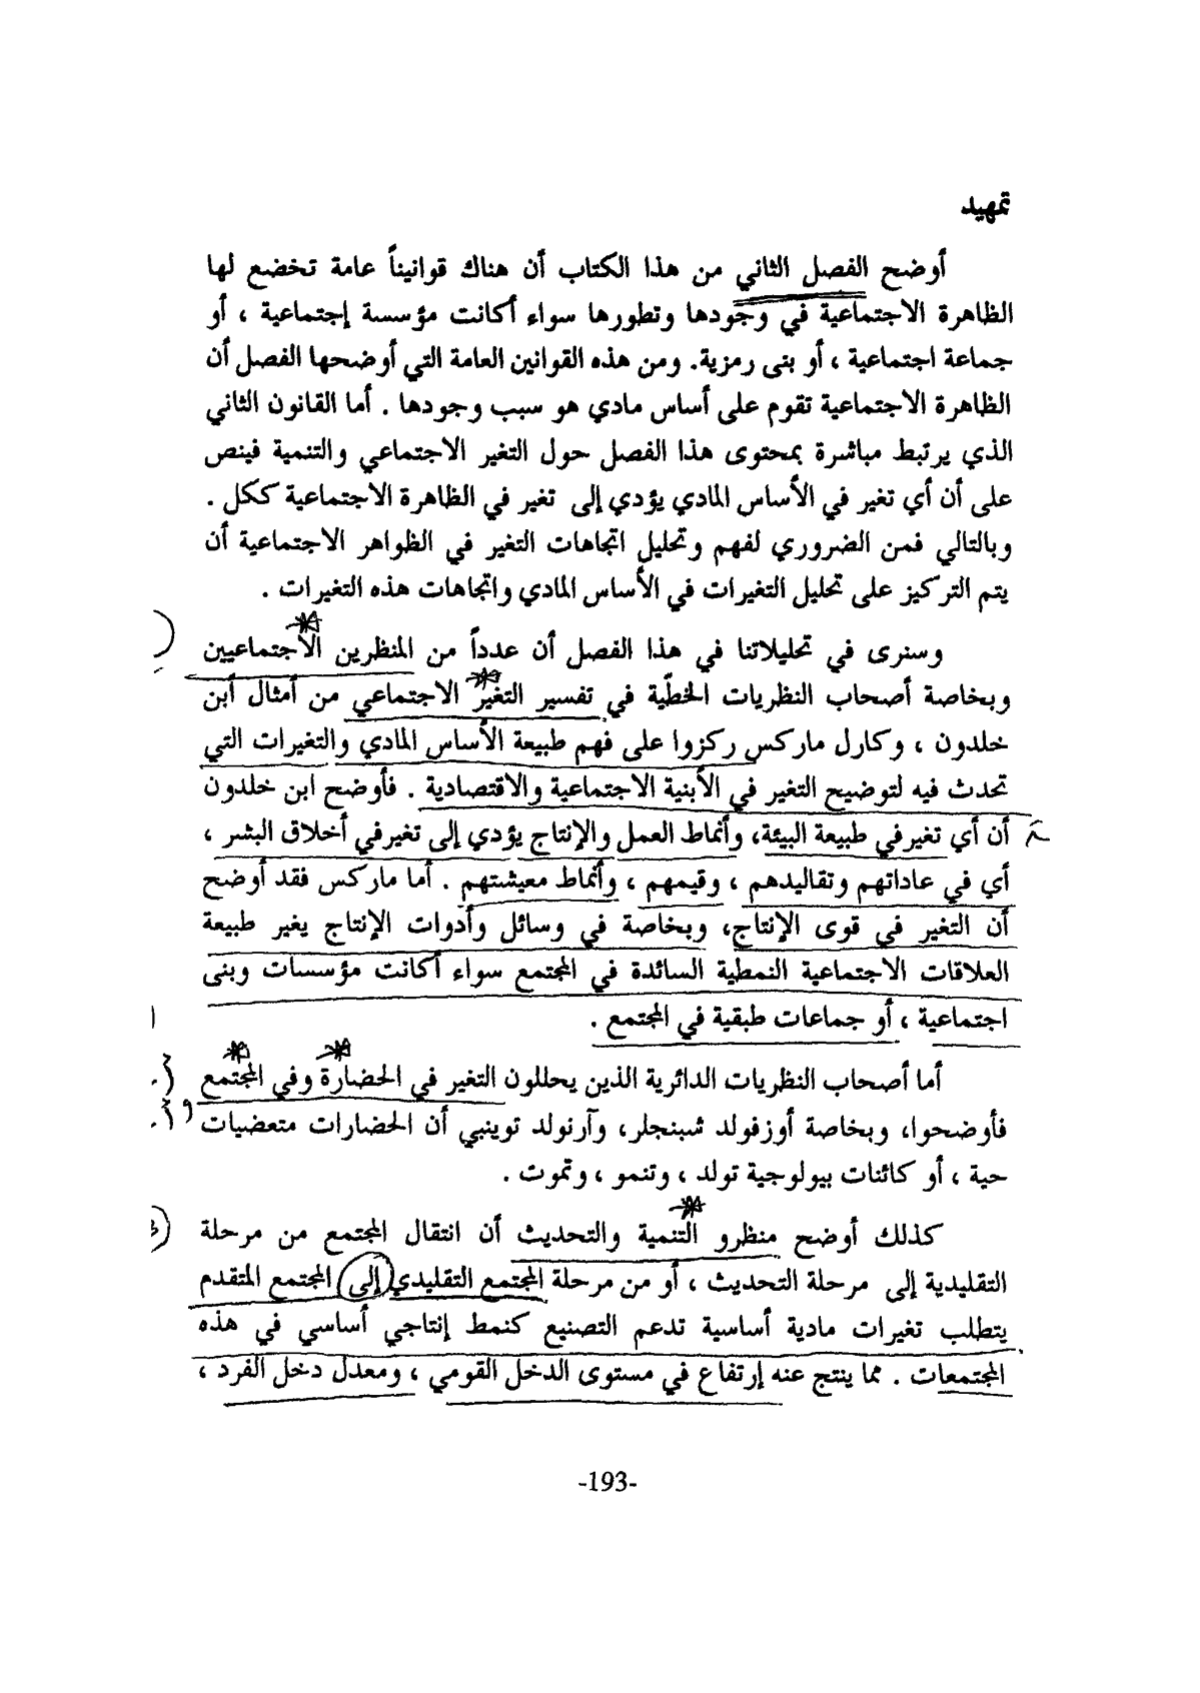 تمهيد
أوضح الفصل الثاني من هذا الكتاب أن هناك قوانيناً عامة تخضع لها
الظاهرة الاجتماعية في وجودها وتطورها سواء أكانت مؤسسة إجتماعية ، أو
جماعة اجتماعية ، أو بنى رمزية. ومن هذه القوانين العامة التي أوضحها الفصل أن
الظاهرة الاجتماعية تقوم على أساس مادي هو سبب وجودها . أما القانون الثاني
الذي يرتبط مباشرة بمحتوى هذا الفصل حول التغير الاجتماعي والتنمية فينص
على أن أي تغير في الأساس المادي يؤدي إلى تغير في الظاهرة الاجتماعية ككل .
وبالتالي فمن الضروري لفهم وتحليل اتجاهات التغير في الظواهر الاجتماعية أن
يتم التركيز على تحليل التغيرات في الأساس المادي واتجاهات هذه التغيرات .
وسنرى في تحليلاتنا في هذا الفصل أن عدداً من المنظرين الاجتماعيين
وبخاصة أصحاب النظريات الخطّية في تفسير التغير الاجتماعي من أمثال أبن
خلدون ، وكارل ماركس ركزوا على فهم طبيعة الأساس المادي والتغيرات التي
تحدث فيه لتوضيح التغير في الأبنية الاجتماعية والاقتصادية . فأوضح ابن خلدون
أن أي تغير في طبيعة البيئة، وأنماط العمل والإنتاج يؤدي إلى تغير في أخلاق البشر ،
أي في عاداتهم وتقاليدهم ، وقيمهم ، وأنماط معيشتهم . أما ماركس فقد أوضح
أن التغير في قوى الإنتاج، وبخاصة في وسائل وأدوات الإنتاج يغير طبيعة
العلاقات الاجتماعية النمطية السائدة في المجتمع سواء أكانت مؤسسات وبنى
اجتماعية ، أو جماعات طبقية في المجتمع .
أما أصحاب النظريات الدائرية الذين يحللون التغير في الحضارة وفي المجتمع
فأوضحوا، وبخاصة أوزفولد شبنجلر، وآرنولد توينبي أن الحضارات متعضيات
حية ، أو كائنات بيولوجية تولد ، وتنمو ، وتموت .
كذلك أوضح منظرو التنمية والتحديث أن انتقال المجتمع من مرحلة
التقليدية إلى مرحلة التحديث ، أو من مرحلة المجتمع التقليدي إلى المجتمع المتقدم
يتطلب تغيرات مادية أساسية تدعم التصنيع كنمط إنتاجي أساسي في هذه
المجتمعات . مما ينتج عنه إرتفاع في مستوى الدخل القومي ، ومعدل دخل الفرد ،
-193-